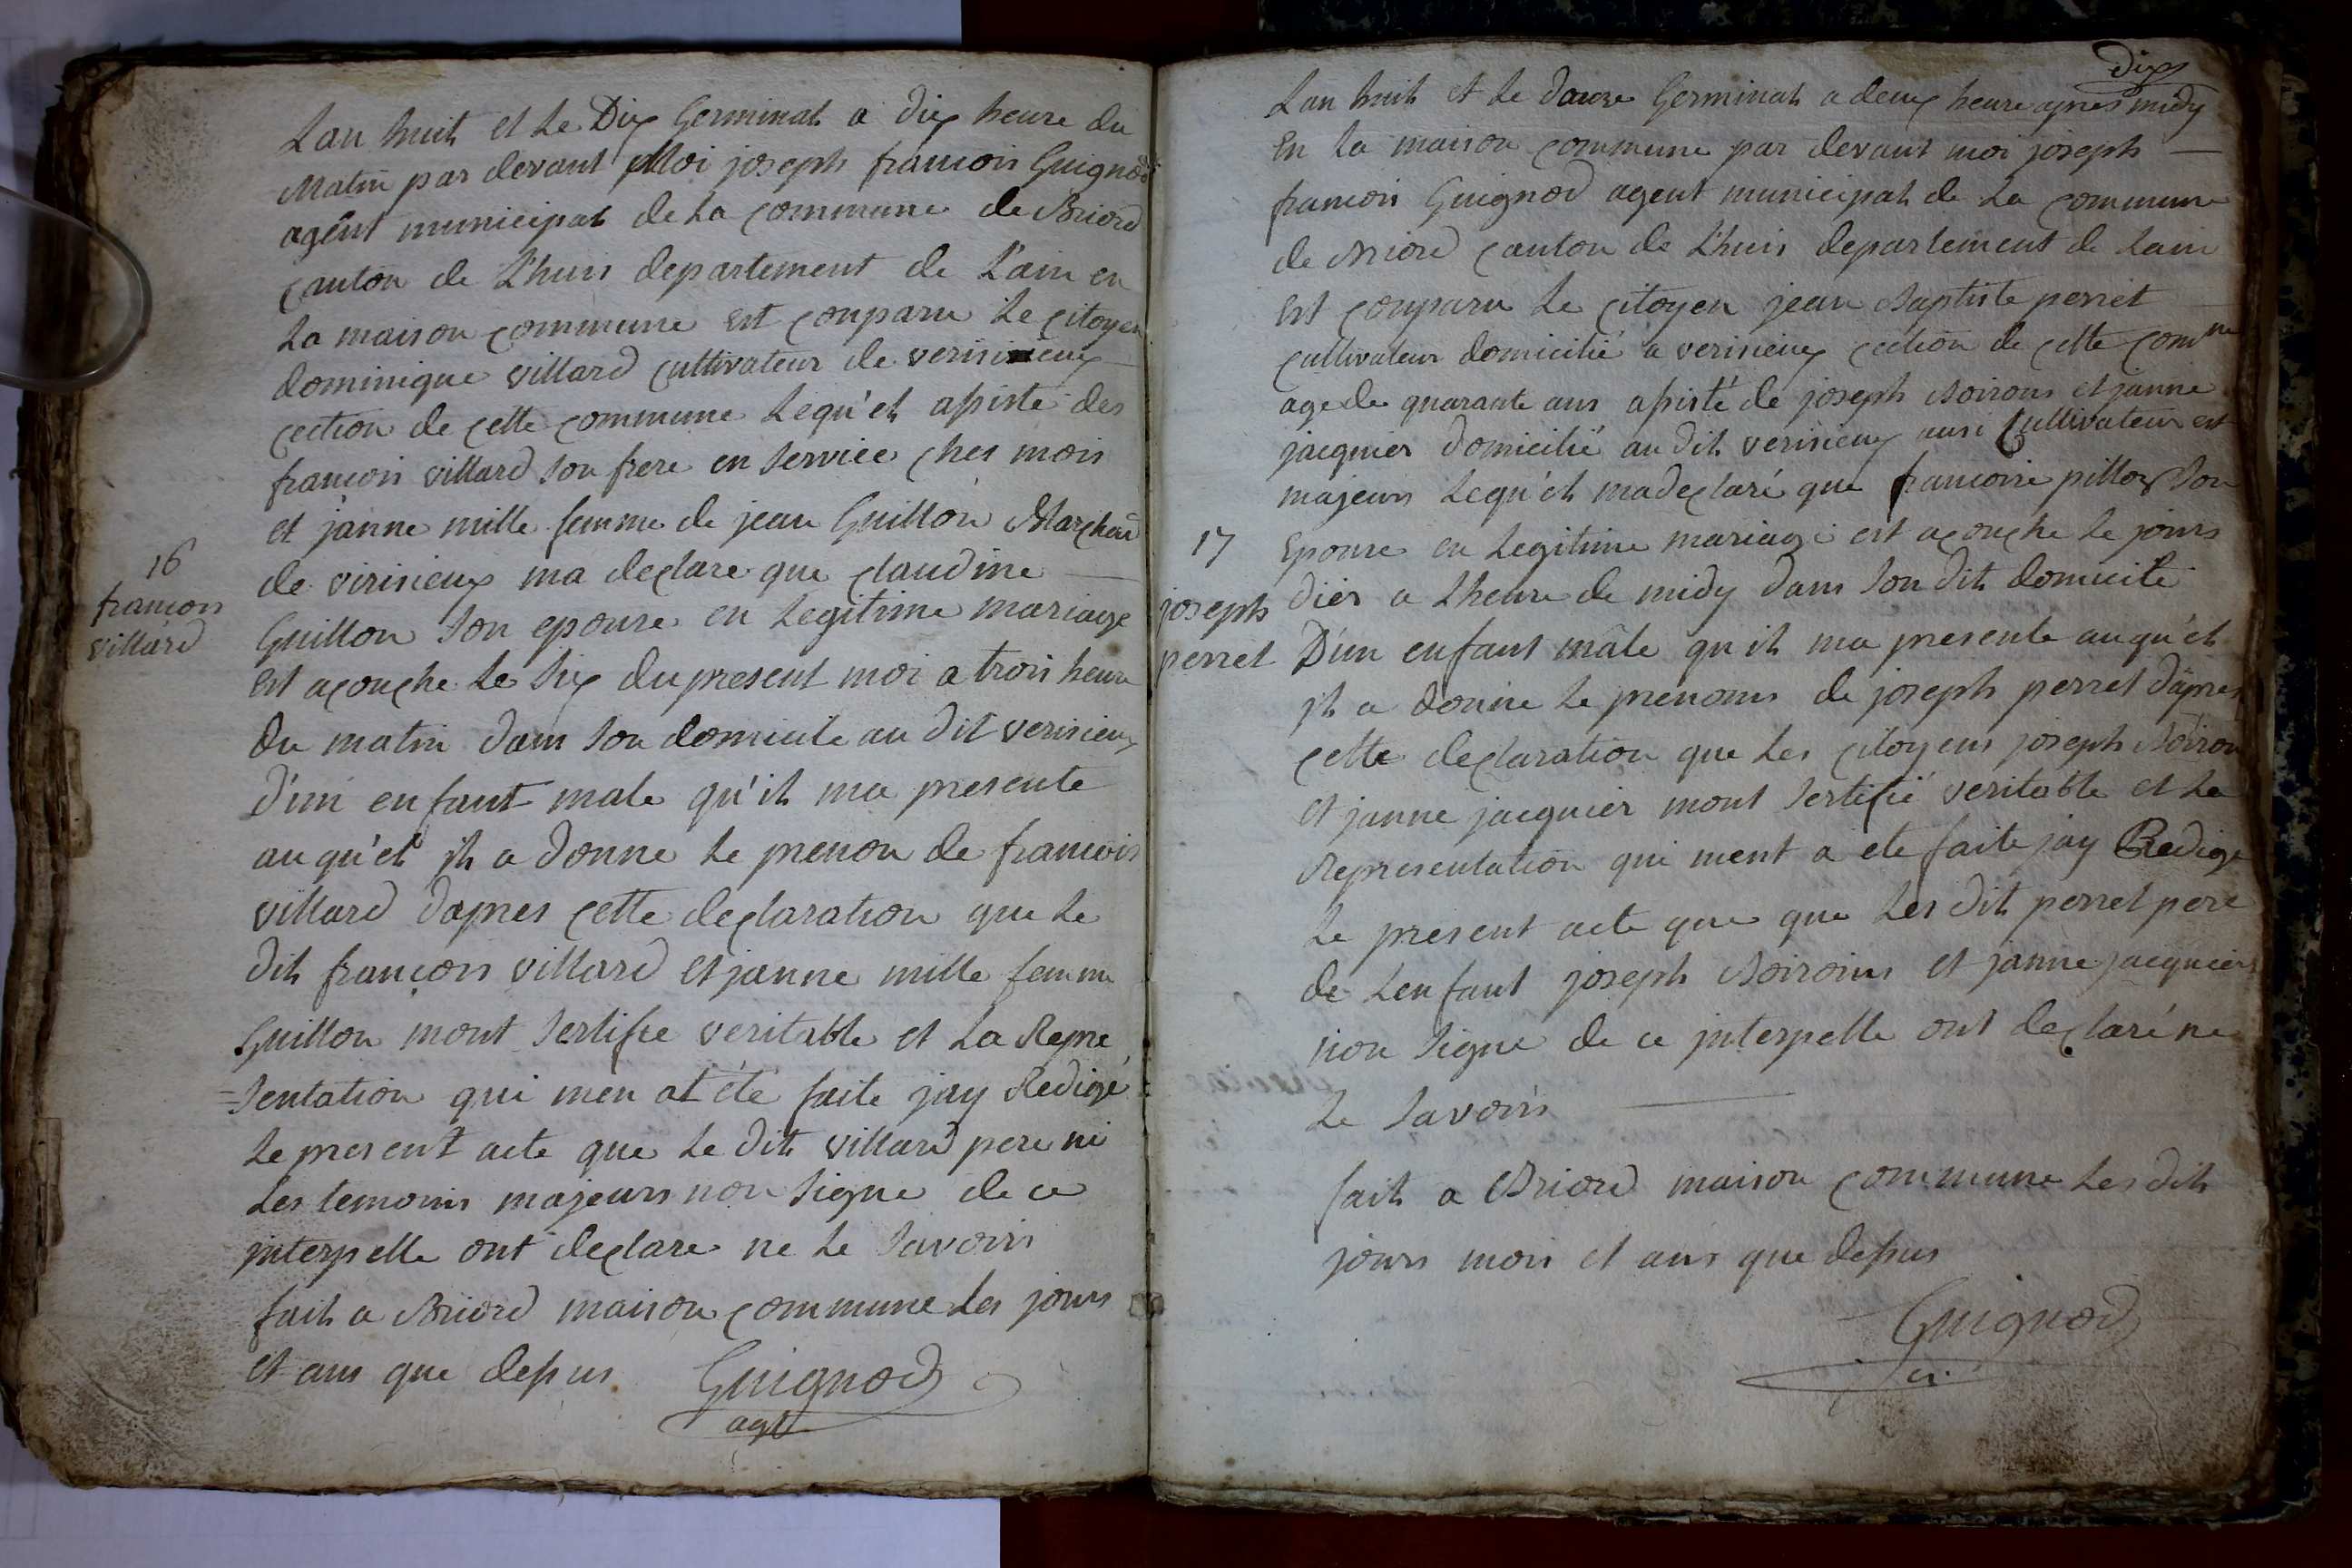 Lan huit et le Dix Germinal a dix heure du
Matin par devant Moi joseph francois Guignod
agent municipal de la commune de Briord
canton de Lhuis departement de L'ain en
la maison commune est conparu le citoyen
dominique villard cultivateur de verisieux
cection de cette commune lequ'el assisté des
francois villard son frere en service ches mois
et janne mille femme de jean Guillon Marchand
de virisieux ma declare que claudine
16
francois
villard
Guillon son epouse en legitime mariage
est acouche le six du present moi a trois heure
du matin dans son domicile au dit verisieux
D'un enfant male qu'il ma presente
auqu'el il a donne le prenon de francois
villard dapres cette declaration que le
dit francois villard et janne mille femme
Guillon mont sertifie veritable et la Repre
=sentation qui men at été faite jay Redigé
le present acte que le dit villard pere ni
les temoins majeurs non signe de ce
interpelle ont declare ne le savoirs
fait a Briord maison commune les jours
et ans que dessus Guignod
agt
dix
Lan huit et le douze Germinal a deux heure apres midy
En la maison commune par devant moi joseph
francois Guignod agent municipal de la commune
de Briord canton de L'huis departement de lain
est conparu le citoyen jean Baptiste perret
cultivateur domicilié a verisieux cection de cette comne
age de quarante ans assisté de joseph Boirons et janne
jacquier domicilié au dit verisieux ausi Cultivateur et
majeurs lequ'el madeclaré que francoise pilloz son
17
Epouse en legitime mariage est acouche le jours
joseph
perret
dier a lheure de midy dans son dit domicile
D'un enfant mâle qu'il ma presente auqu'el
il a donne le prenoms de joseph perret d'apres
cette declaration que les citoyens joseph Boiron
et janne jacquier mont sertifié veritable et la
Representation qui ment a ete faite jay Redige
le present acte que que les dit perret pere
de Lenfant joseph Boiroins et janne jacquiers
non signe de ce interpelle ont declaré ne
le savoirs
fait a Briord maison commune les dit
jours mois et ans que dessus
Guignod